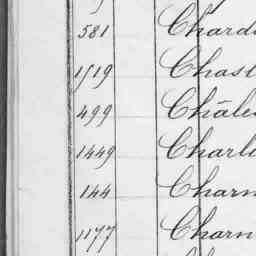 581 Chard
1519 Chast
499 Châle
1449 Charl
144 Charn
1177 Charn